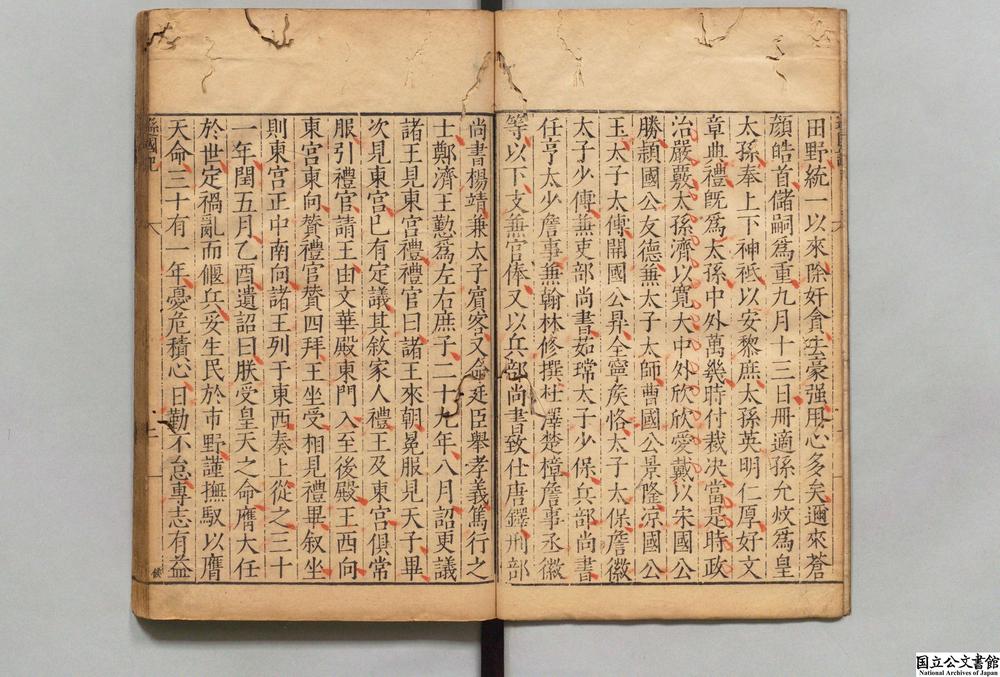 田野統一以來除奸貪去豪强用心多矣邇來蒼
顔皓首儲嗣爲重九月十三日冊適孫允炆爲皇
太孫奉上下神祗以安黎庶太孫英明仁厚好文
章典禮旣爲太孫中外萬幾時付裁決當是時政
治嚴覈太孫濟以寬大中外欣欣愛戴以宋國公
勝頴國公友德兼太子太師曹國公景隆凉國公
玉太子太傅開國公昇全寧侯恪太子太保詹徽
太子少傅兼吏部尚書茹瑺太子少保兵部尚書
任亨太少詹事兼翰林修撰杜澤楚樟詹事丞徽
等以下支兼官俸又以兵部尚書致仕唐鐸刑部
尚書楊靖兼太子賓客又命廷臣舉孝義篤行之
士鄭濟王懃爲左右庶子二十九年八月詔更議
諸王見東宮禮禮官曰諸王來朝冕服見天子畢
次見東宮已有定議其敘家人禮王及東宮俱常
服引禮官請王由文華殿東門入至後殿王西向
東宮東向贊禮官贊四拜王坐受相見禮畢叙坐
則東宮正中南向諸王列于東西奏上從之三十
一年閏五月乙酉遺詔曰朕受皇天之命膺大任
於世定禍亂而偃兵妥生民於市野謹撫馭以膺
天命三十有一年憂危積心日勤不怠專志有益
遜國記
国立公文書館
National Archives of Japan